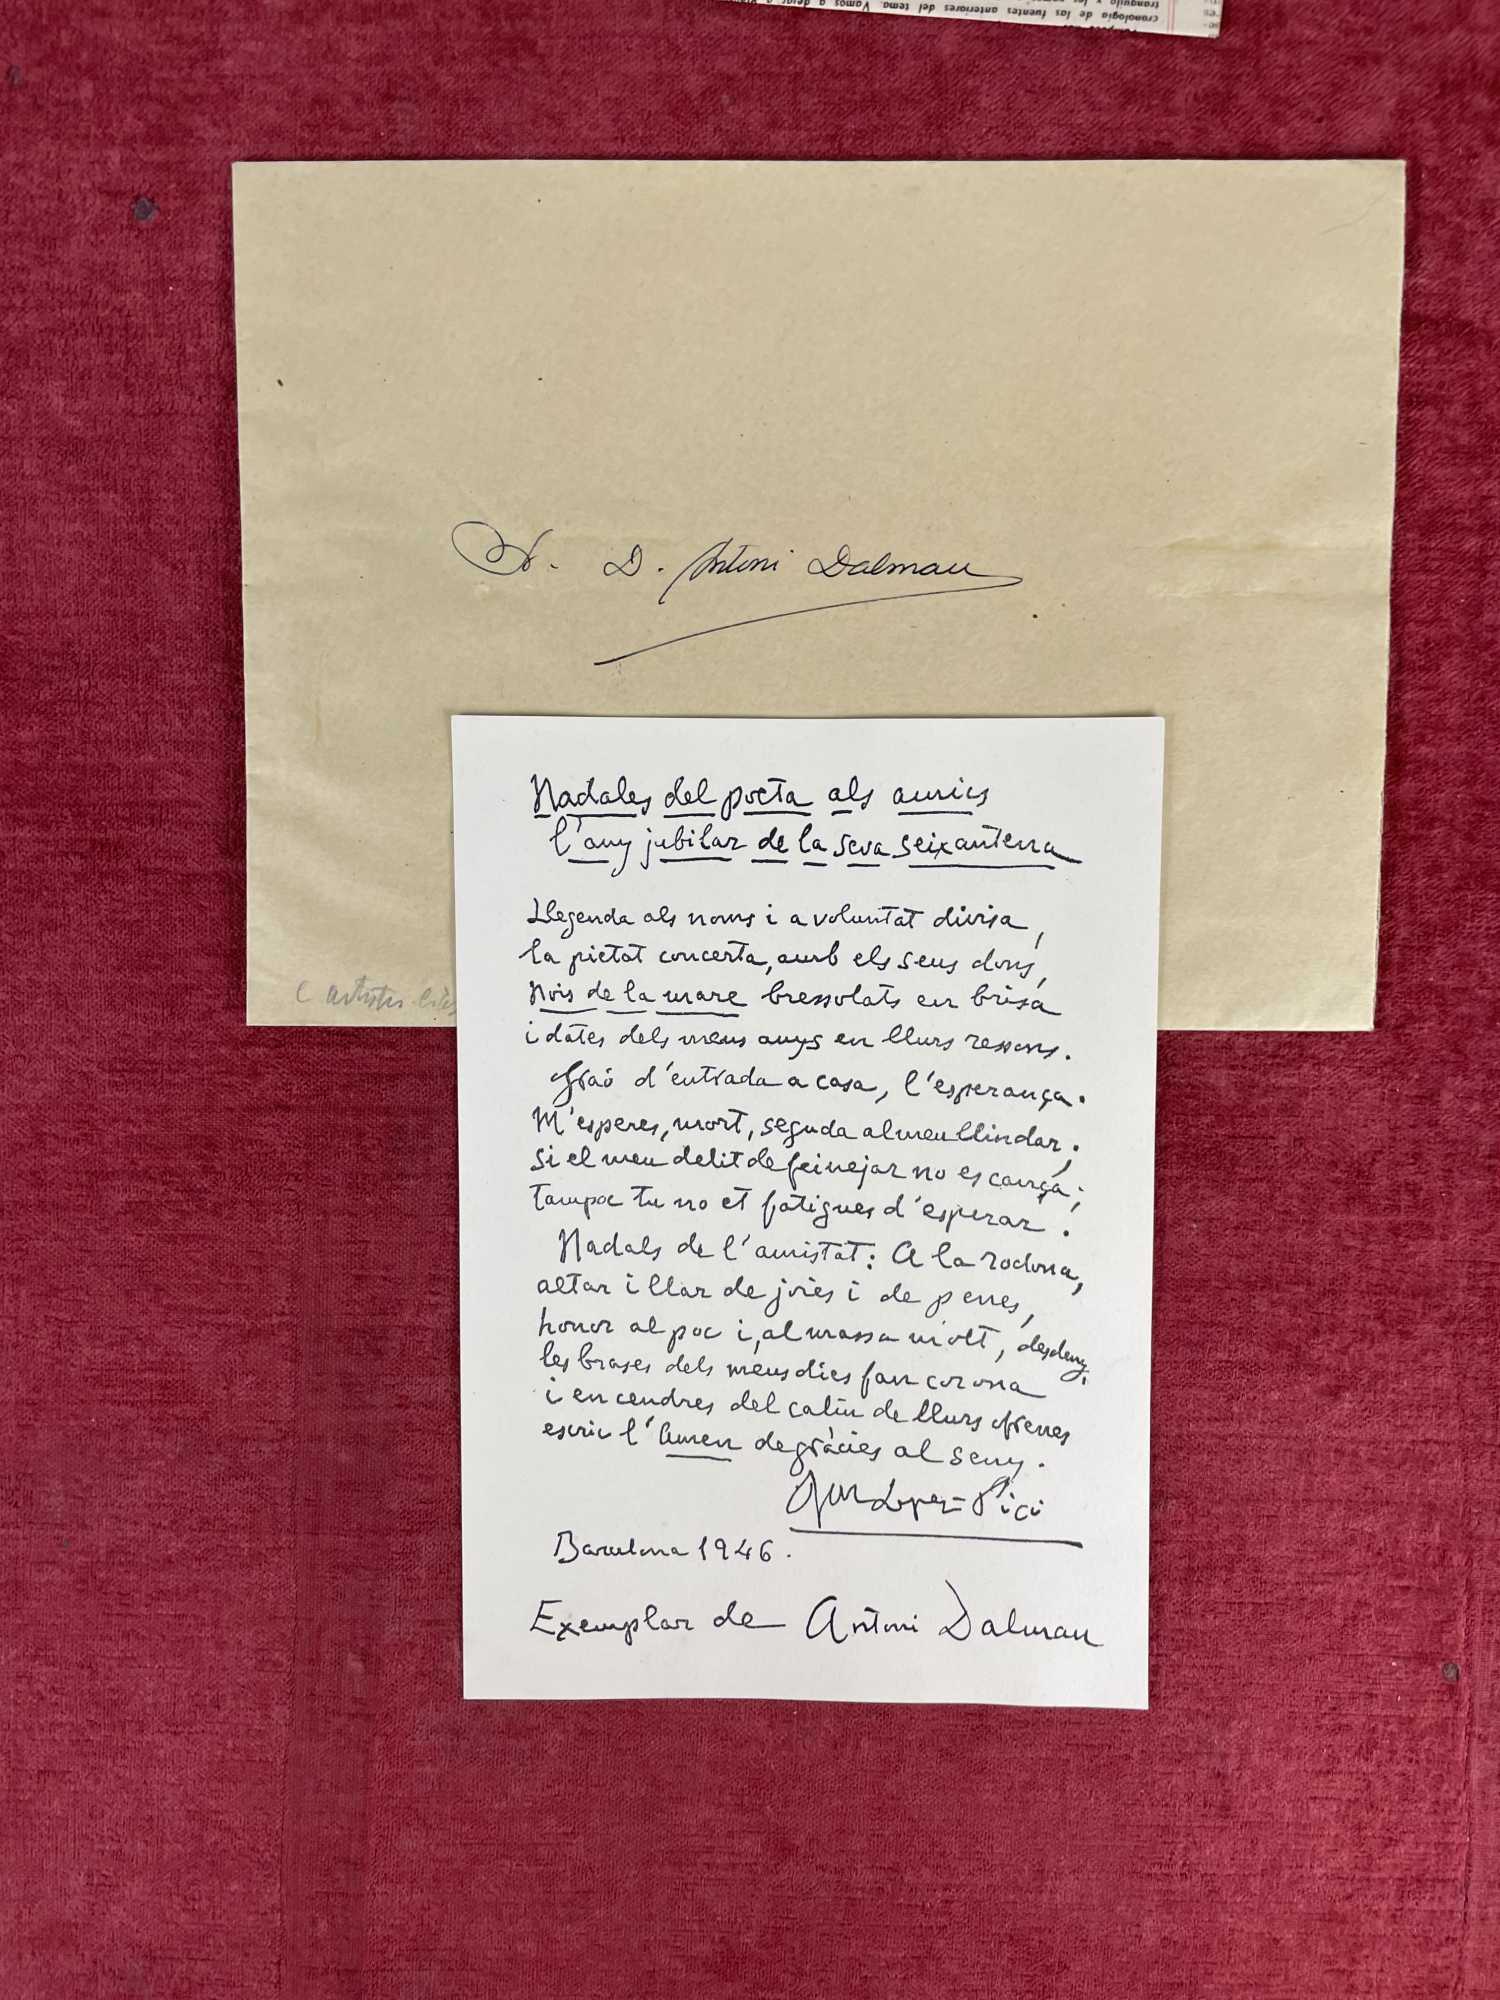 cronología de las fuentes anteriores del tema. Vamos a dejar a
tranquilo y los
Sr. D. Antoni Dalmau
Nadales del poeta als amics
l'any jubilar de la seva seixantena
Llegenda als noms i a voluntat divisa,
la pietat concerta, amb els seus dons,
Nois de la mare bressolats en brisa
i dates dels meus anys en llurs ressons.
Graó d'entrada a casa, l'esperança.
M'esperes, mort, seguda al meu llindar;
si el meu delit de feinejar no es cança;
tampoc tu no et fatigues d'esperar.
Nadals de l'amistat: A la rodona,
altar i llar de joies i de penes,
honor al poc i, al massa molt, desdeny,
les brases dels meus dies fan corona
i en cendres del caliu de llurs ofrenes
escric l'Amen de gràcies al seny.
JM López-Picó
Barcelona 1946.
Exemplar de Antoni Dalmau